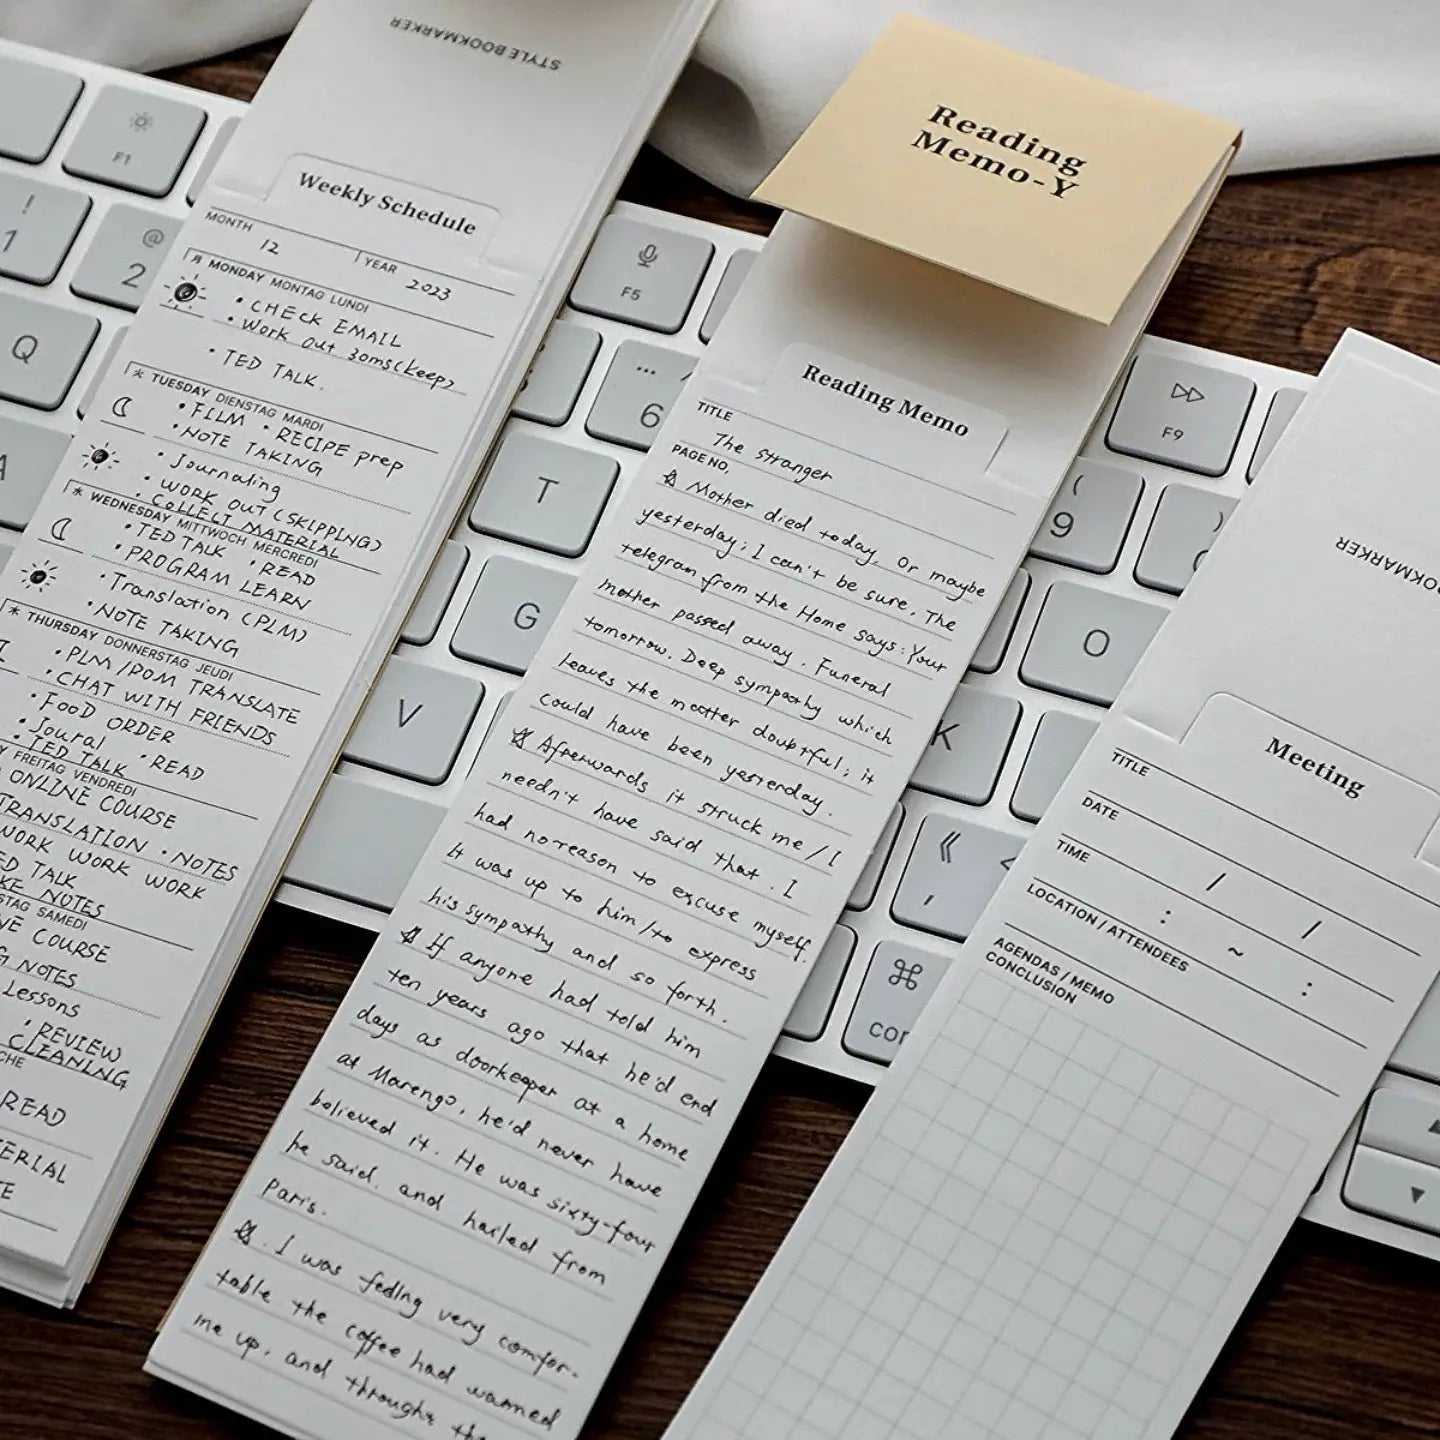 STYLE BOOKMARKER
Weekly Schedule
MONTH 12 YEAR 2023
月 MONDAY MONTAG LUNDI
• CHECK EMAIL
• Work out 30ms(keep)
• TED TALK.
TUESDAY DIENSTAG MARDI
• FILM • RECIPE prep
• NOTE TAKING
• Journaling
• WORK OUT (SKIPPING)
• COLLECT MATERIAL
WEDNESDAY MITTWOCH MERCREDI
• TED TALK • READ
• PROGRAM LEARN
• Translation (PLM)
• NOTE TAKING
THURSDAY DONNERSTAG JEUDI
• PLM/POM TRANSLATE
• CHAT WITH FRIENDS
• FOOD ORDER
• Joural • READ
• TED TALK
FREITAG VENDREDI
ONLINE COURSE
TRANSLATION • NOTES
WORK WORK WORK
TALK
NOTES
SAMEDI
COURSE
NOTES
Lessons
• REVIEW
CLEANING
READ
Reading
Memo-Y
Reading Memo
TITLE
The stranger
PAGE NO.
☆ Mother died today. Or maybe
yesterday; I can't be sure. The
telegram from the Home says: Your
mother passed away. Funeral
tomorrow. Deep sympathy which
leaves the matter doubtful; it
could have been yesterday.
☆ Afterwards it struck me / I
needn't have said that. I
had no reason to excuse myself.
It was up to him/to express
his sympathy and so forth.
☆ If anyone had told him
ten years ago that he'd end
days as doorkeeper at a home
at Marengo, he'd never have
believed it. He was sixty-four
he said, and hailed from
Paris.
☆. I was feeling very comfor-
table. the coffee had warmed
me up, and through
Meeting
TITLE
DATE / /
TIME : ~ :
LOCATION / ATTENDEES
AGENDAS / MEMO
CONCLUSION
F1
!
1
@
2
Q
A
F5
6
T
G
V
F9
(
9
)
O
K
<
,
⌘